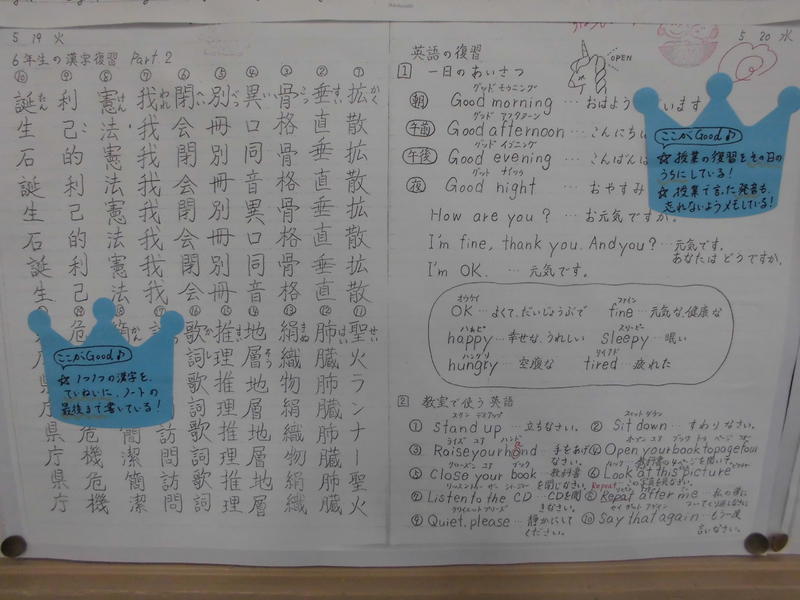 5 19 火
6年生の漢字復習 Part 2
① 拡散拡散拡散拡散
② 垂直垂直垂直垂直
③ 骨格骨格骨格骨格
④ 異口同音異口同音
⑤ 別冊別冊別冊別冊
⑥ 閉会閉会閉会閉会
⑦ 我我我我我我我
⑧ 憲法憲法憲法憲法
⑨ 利己的利己的利己
⑩ 誕生石誕生石誕生
⑪ 聖火ランナー聖火
⑫ 肺臓肺臓肺臓肺臓
⑬ 絹織物絹織物絹織物
⑭ 地層地層地層地層
⑮ 推理推理推理推理
⑯ 歌詞歌詞歌詞歌詞
訪問訪問
簡潔
危機危機
県庁県庁
ここがGood♪
☆ 1つ1つの漢字を、
ていねいに、ノートの
最後まで書いている!
5 20 水
英語の復習
OPEN
1 一日のあいさつ
グッド モーニング
朝 Good morning … おはよう います
グッド アフタヌーン
午前 Good afternoon … こんにち
グッド イブニング
午後 Good evening … こんばんは
グッド ナイト
夜 Good night … おやすみ
How are you? … お元気ですか。
I'm fine, thank you. And you? … 元気です。
あなたは どうですか。
I'm OK. … 元気です。
ここがGood♪
☆ 授業の復習をその日の
うちにしている!
☆ 授業で言った発音も、
忘れないようメモしている!
オウケイ ファイン
OK … よくて、だいじょうぶで fine … 元気な、健康な
ハぁピ スリーピー
happy … 幸せな、うれしい sleepy … 眠い
ハングリ タイアド
hungry … 空腹な tired … 疲れた
2 教室で使う英語
スタンド アップ スィット ダウン
① Stand up … 立ちなさい。 ② Sit down … すわりなさい。
③ Raise your hand … 手をあげなさい。 ④ Open your book to page four
⑤ Close your book … 教科書を閉じなさい。 ⑥ Look at this picture
⑦ Listen to the CD … CDを聞きなさい。 ⑧ Repeat after me … 私の後に
Repeat
⑨ Quiet, please … 静かにしてください。 ⑩ Say that again … もう一度言いなさい。